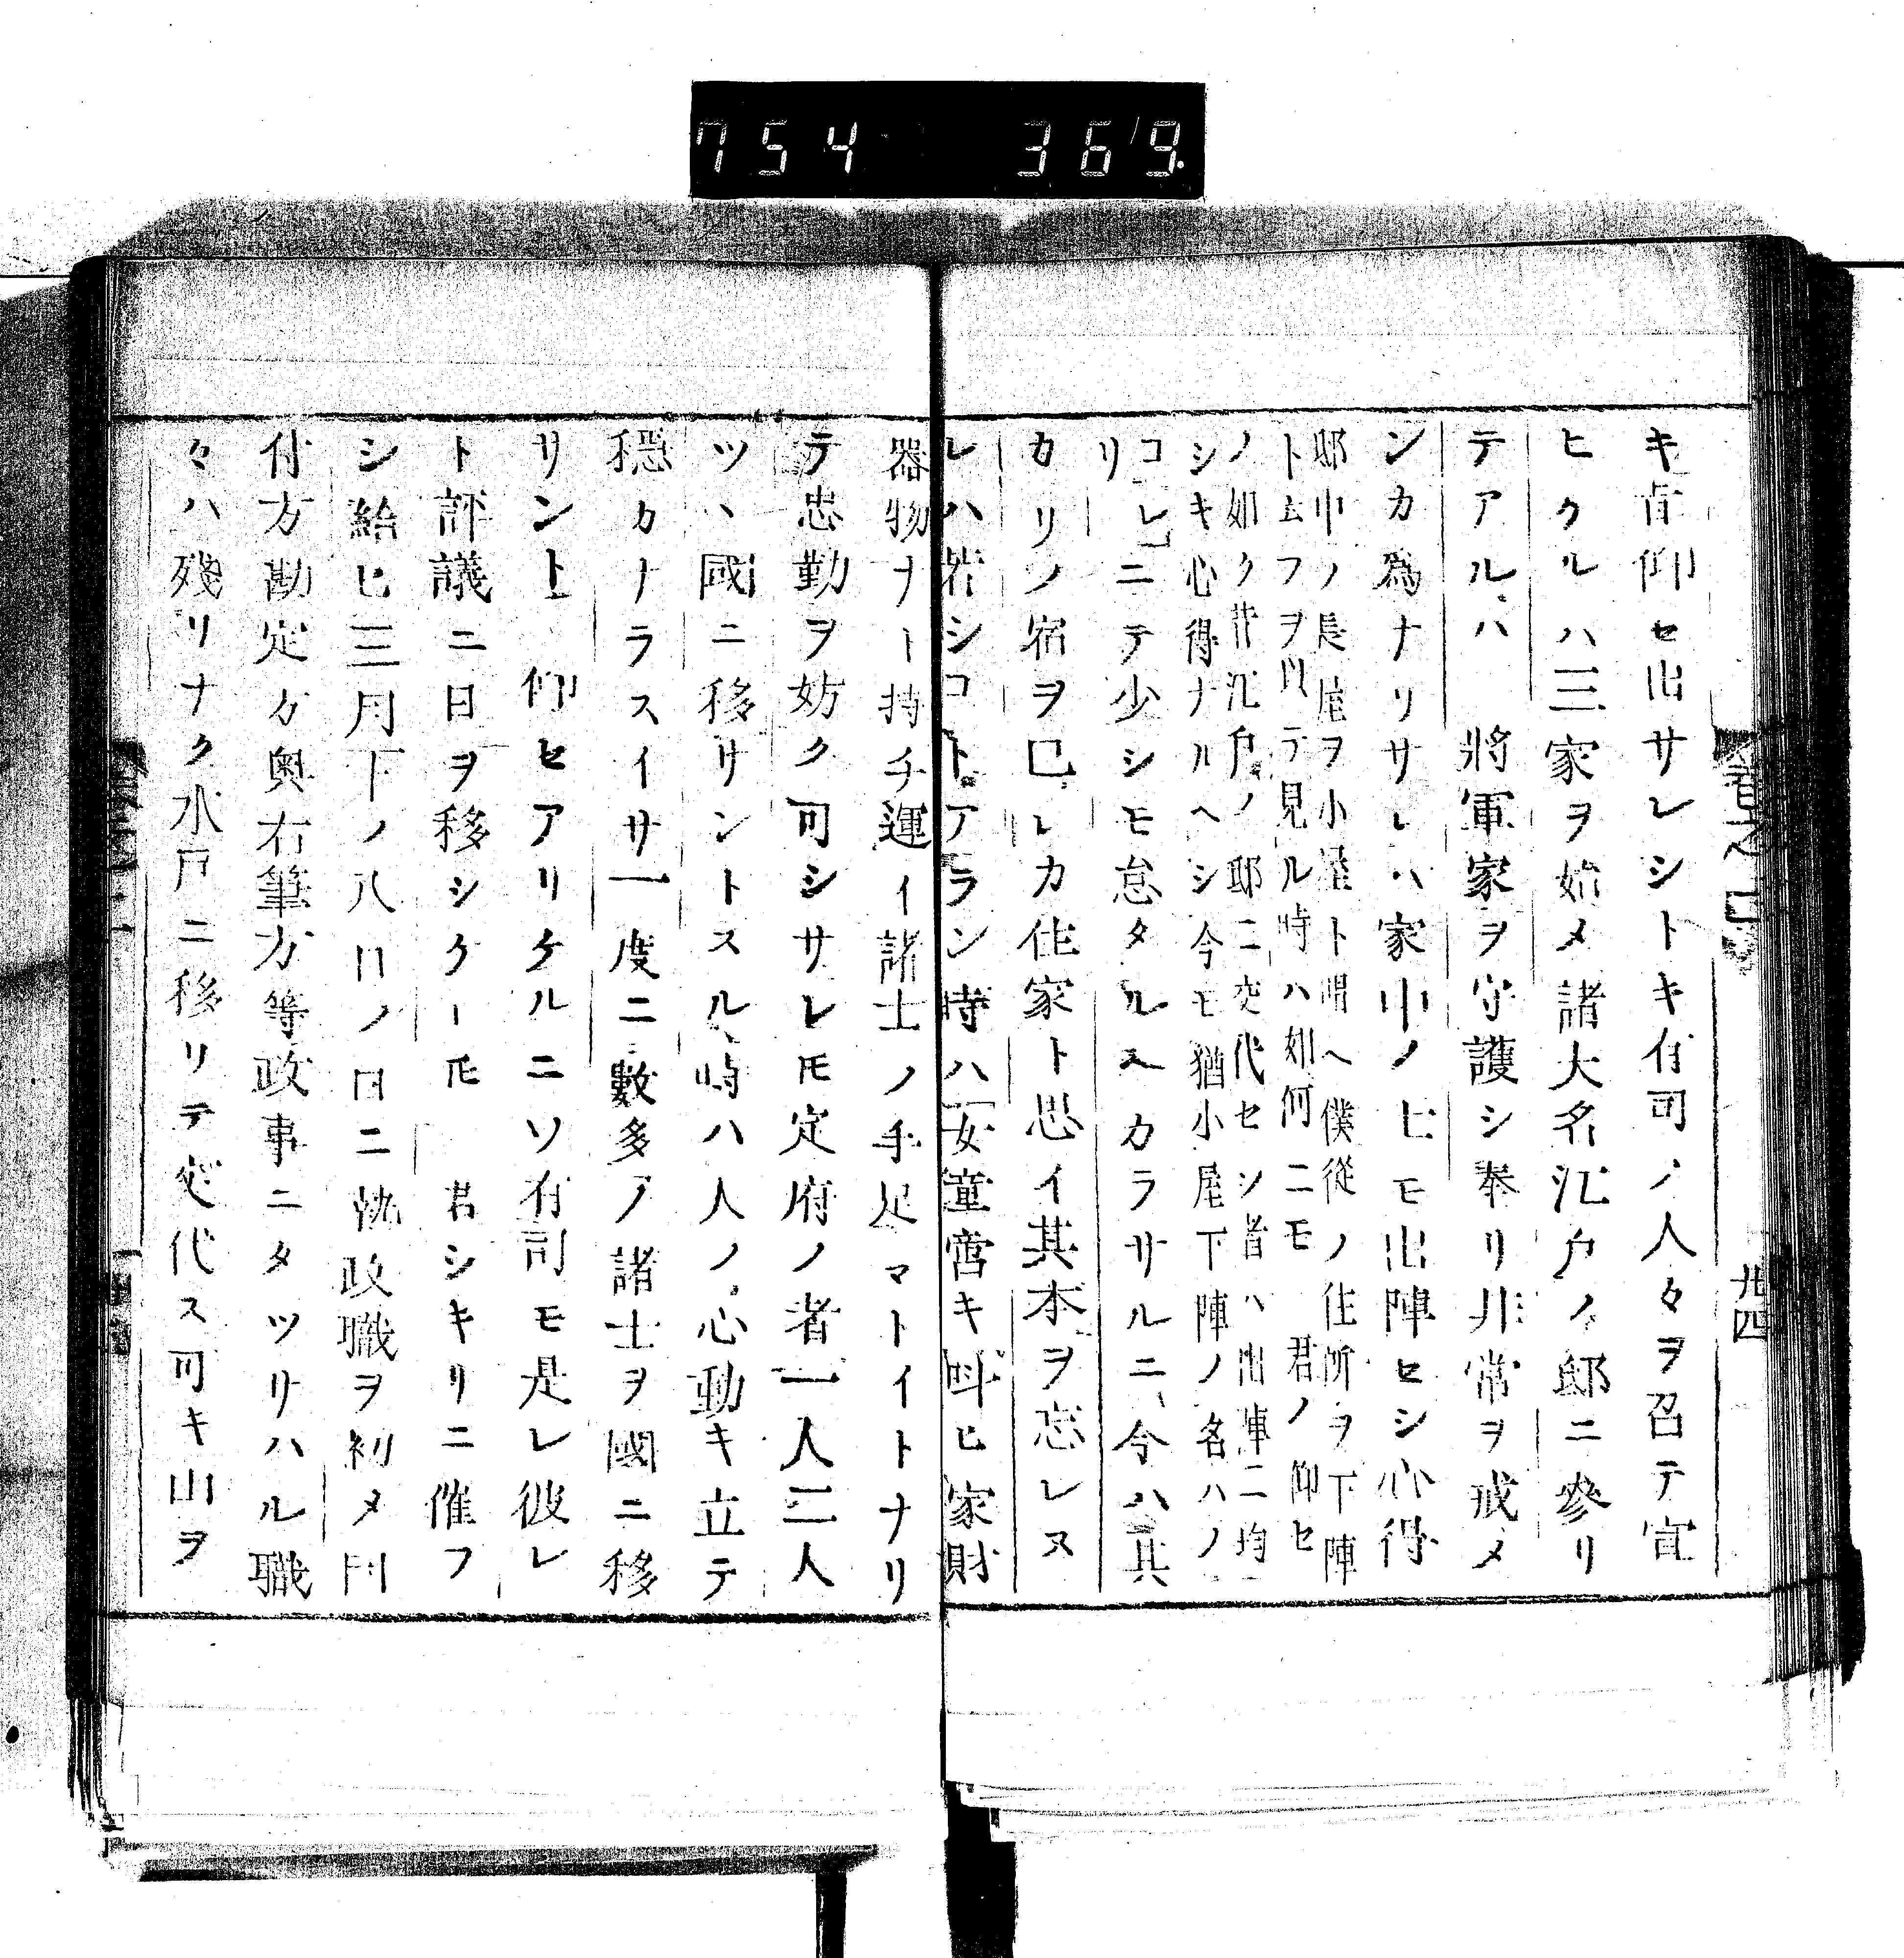 754 369
卷之二
卅四
キ旨仰セ出サレシトキ有司ノ人々ヲ召テ宣
ヒクルハ三家ヲ始メ諸大名江戸ノ邸ニ參リ
テアルハ　將軍家ヲ守護シ奉リ非常ヲ戒メ
ンカ爲ナリサレハ家中ノ士モ出陣セシ心得
邸中ノ長屋ヲ小屋ト唱ヘ僕從ノ住所ヲ下陣
トムフヲ以テ見ル時ハ如何ニモ　君ノ仰セ
ノ如ク昔江戸ノ邸ニ交代セシ者ハ出陣ニ均
シキ心得ナルヘシ今モ猶小屋下陣ノ名ハノ
コレ
リ
ニテ少シモ怠タルヘカラサルニ今ハ其
カリノ宿ヲ己レカ住家ト思イ其本ヲ忘レヌ
レハ若シコトアラン時ハ女童啻キ叫ヒ家財
器物ナト持チ運イ諸士ノ手足マトイトナリ
テ忠勤ヲ妨ク可シサレモ定府ノ者一人二人
ツヽ國ニ移サントスル時ハ人ノ心動キ立テ
穩カナラスイサ一度ニ數多ノ諸士ヲ國ニ移
サント　仰セアリケルニソ有司モ是レ彼レ
ト評議ニ日ヲ移シケレ𪜈　君シキリニ催フ
シ給ヒ三月下ノ八日ノ日ニ執政職ヲ初メ目
付方勘定方奧右筆方等政事ニタツサハル職
々ハ殘リナク水戸ニ移リテ交代ス可キ由ヲ